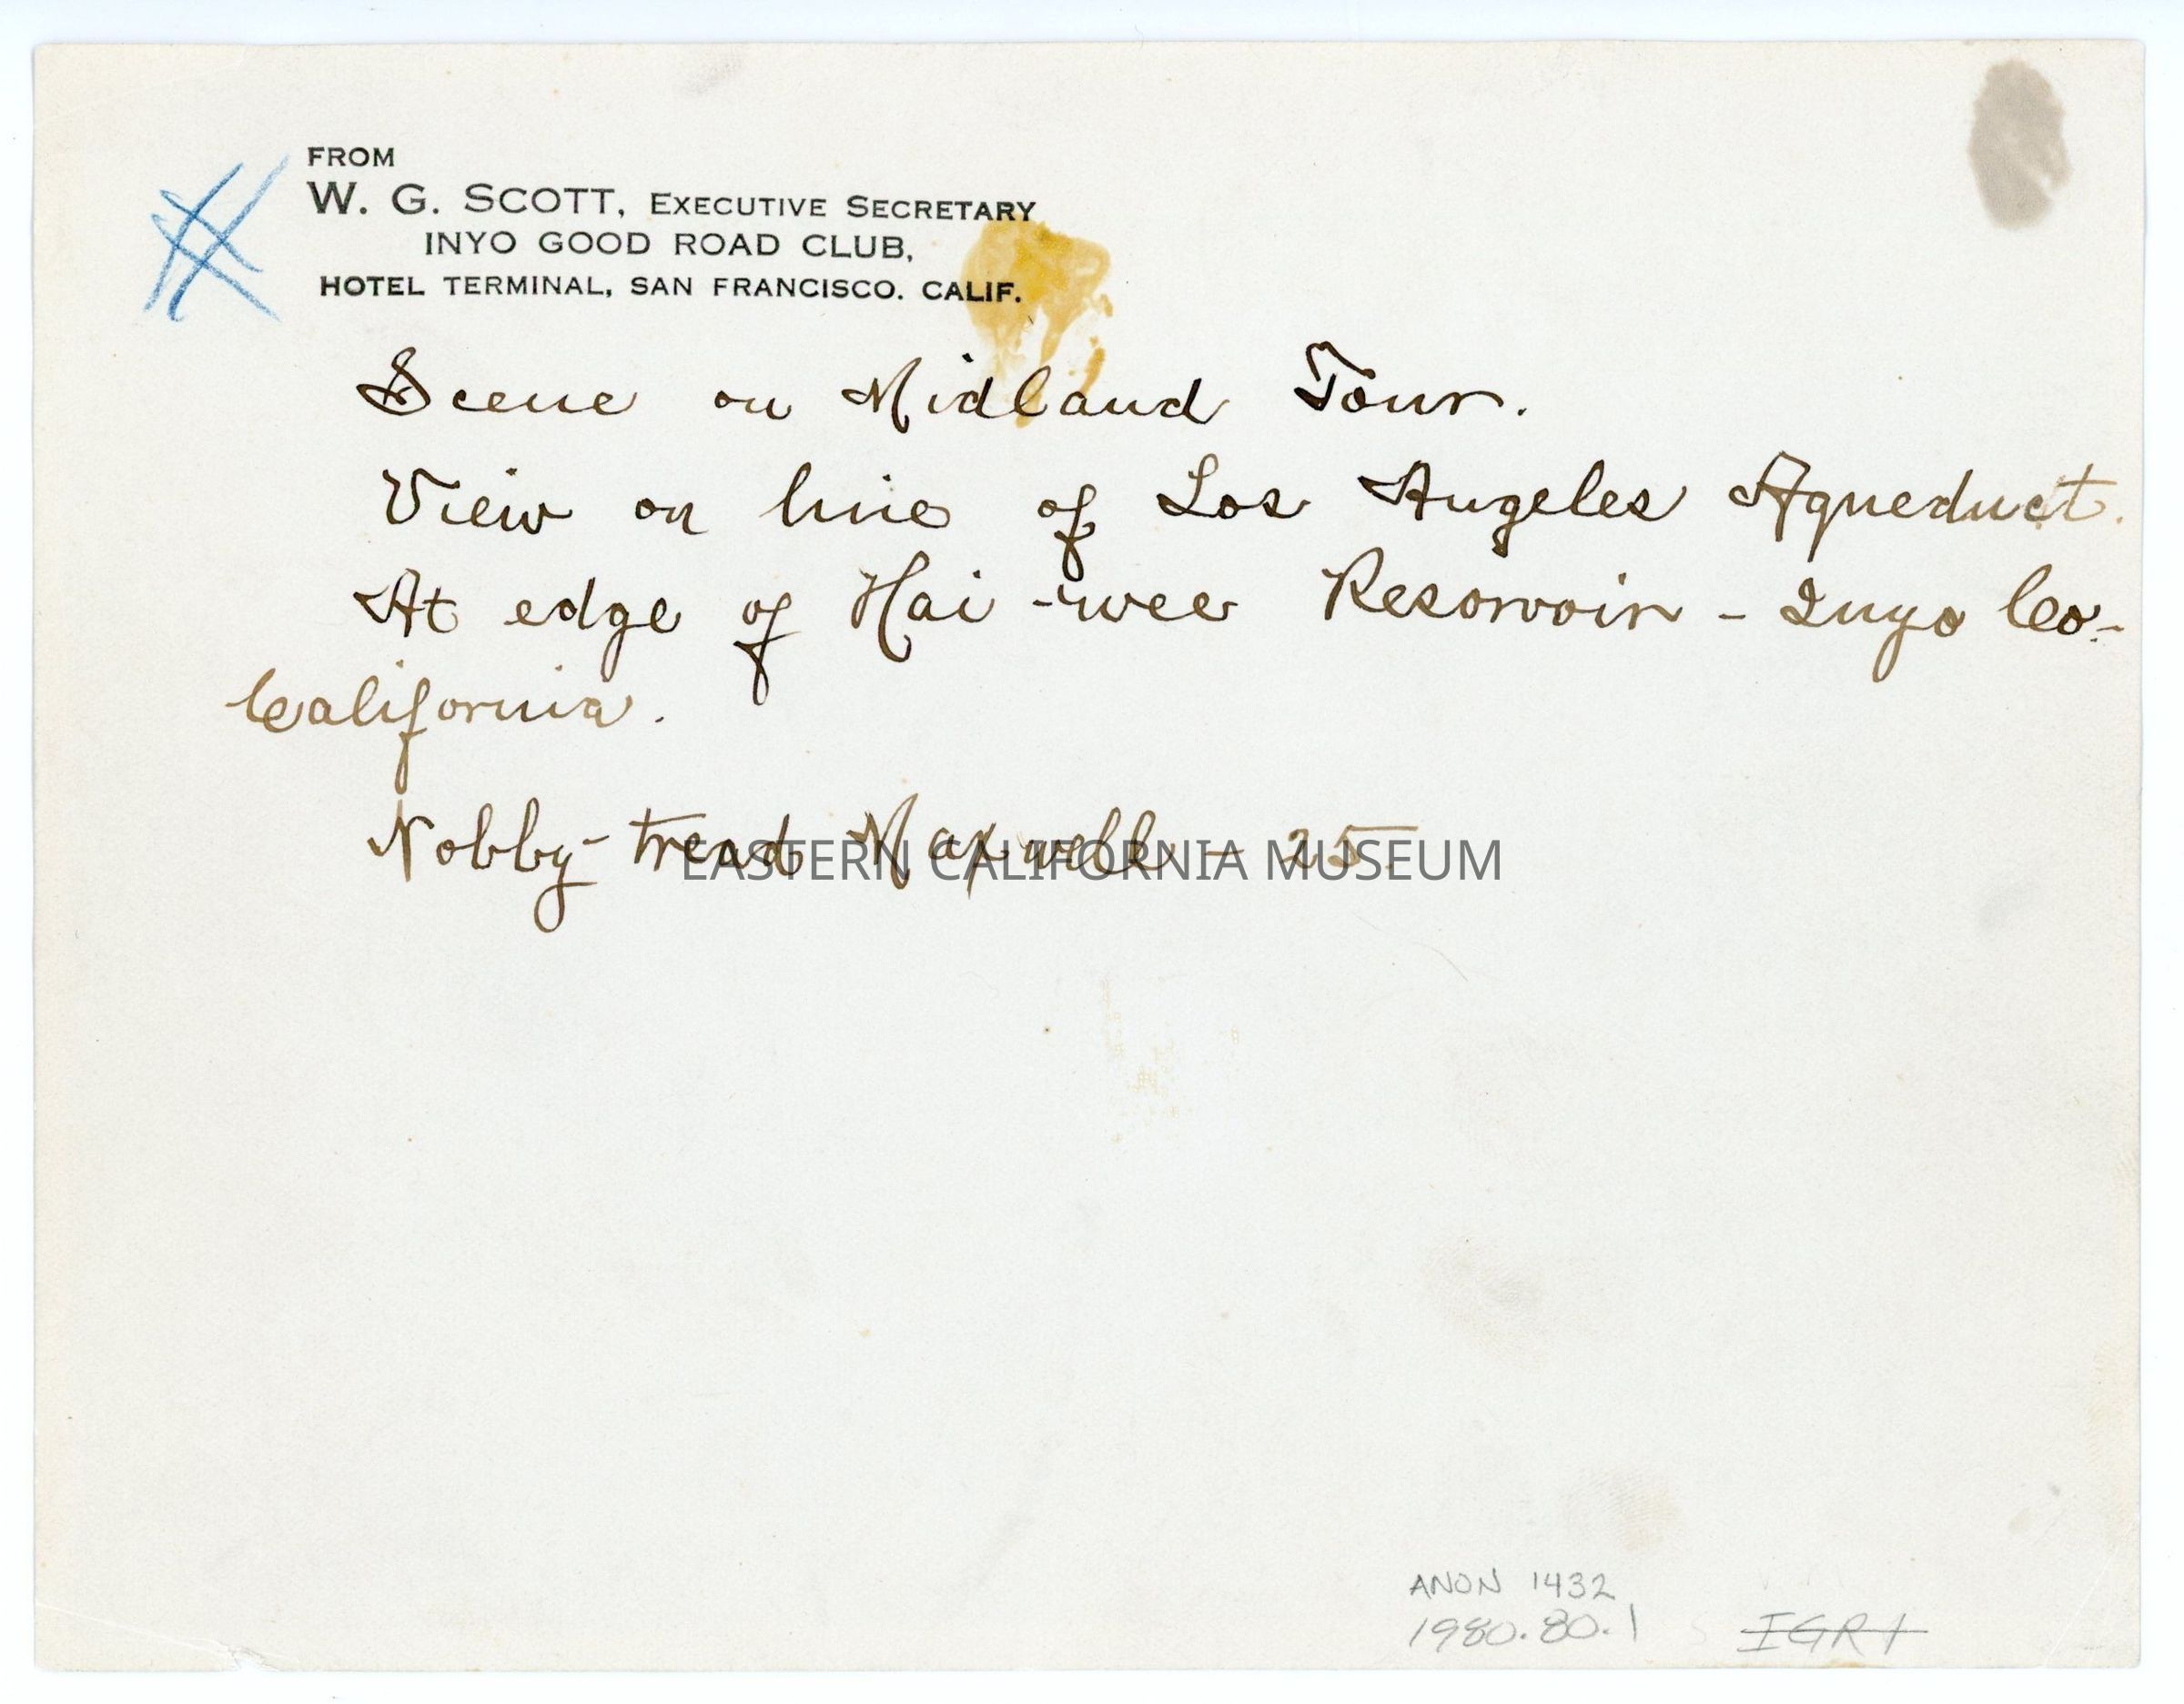 FROM
W. G. SCOTT, EXECUTIVE SECRETARY
INYO GOOD ROAD CLUB,
HOTEL TERMINAL, SAN FRANCISCO. CALIF.
Scene on Midland Tour.
View on line of Los Angeles Aqueduct.
At edge of Hai-wee Resorvoir - Inyo Co-
California.
Nobby-tread Maxwell - 25.
EASTERN CALIFORNIA MUSEUM
ANON 1432
1980.80.1 IGR1